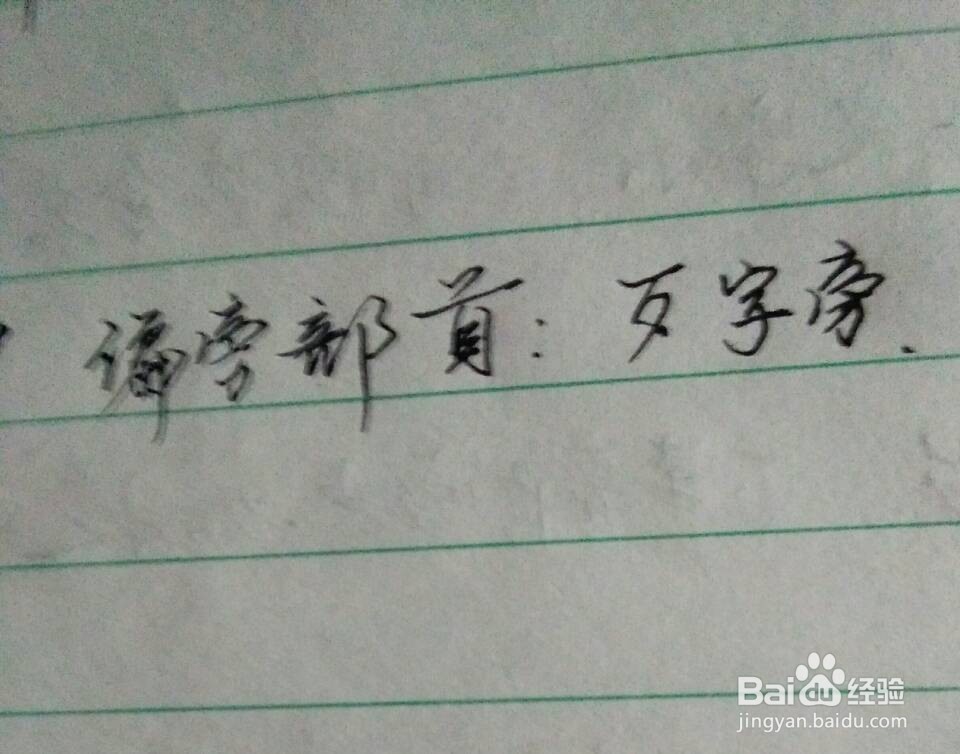 偏旁部首：歹字旁.
Baidu经验
jingyan.baidu.com